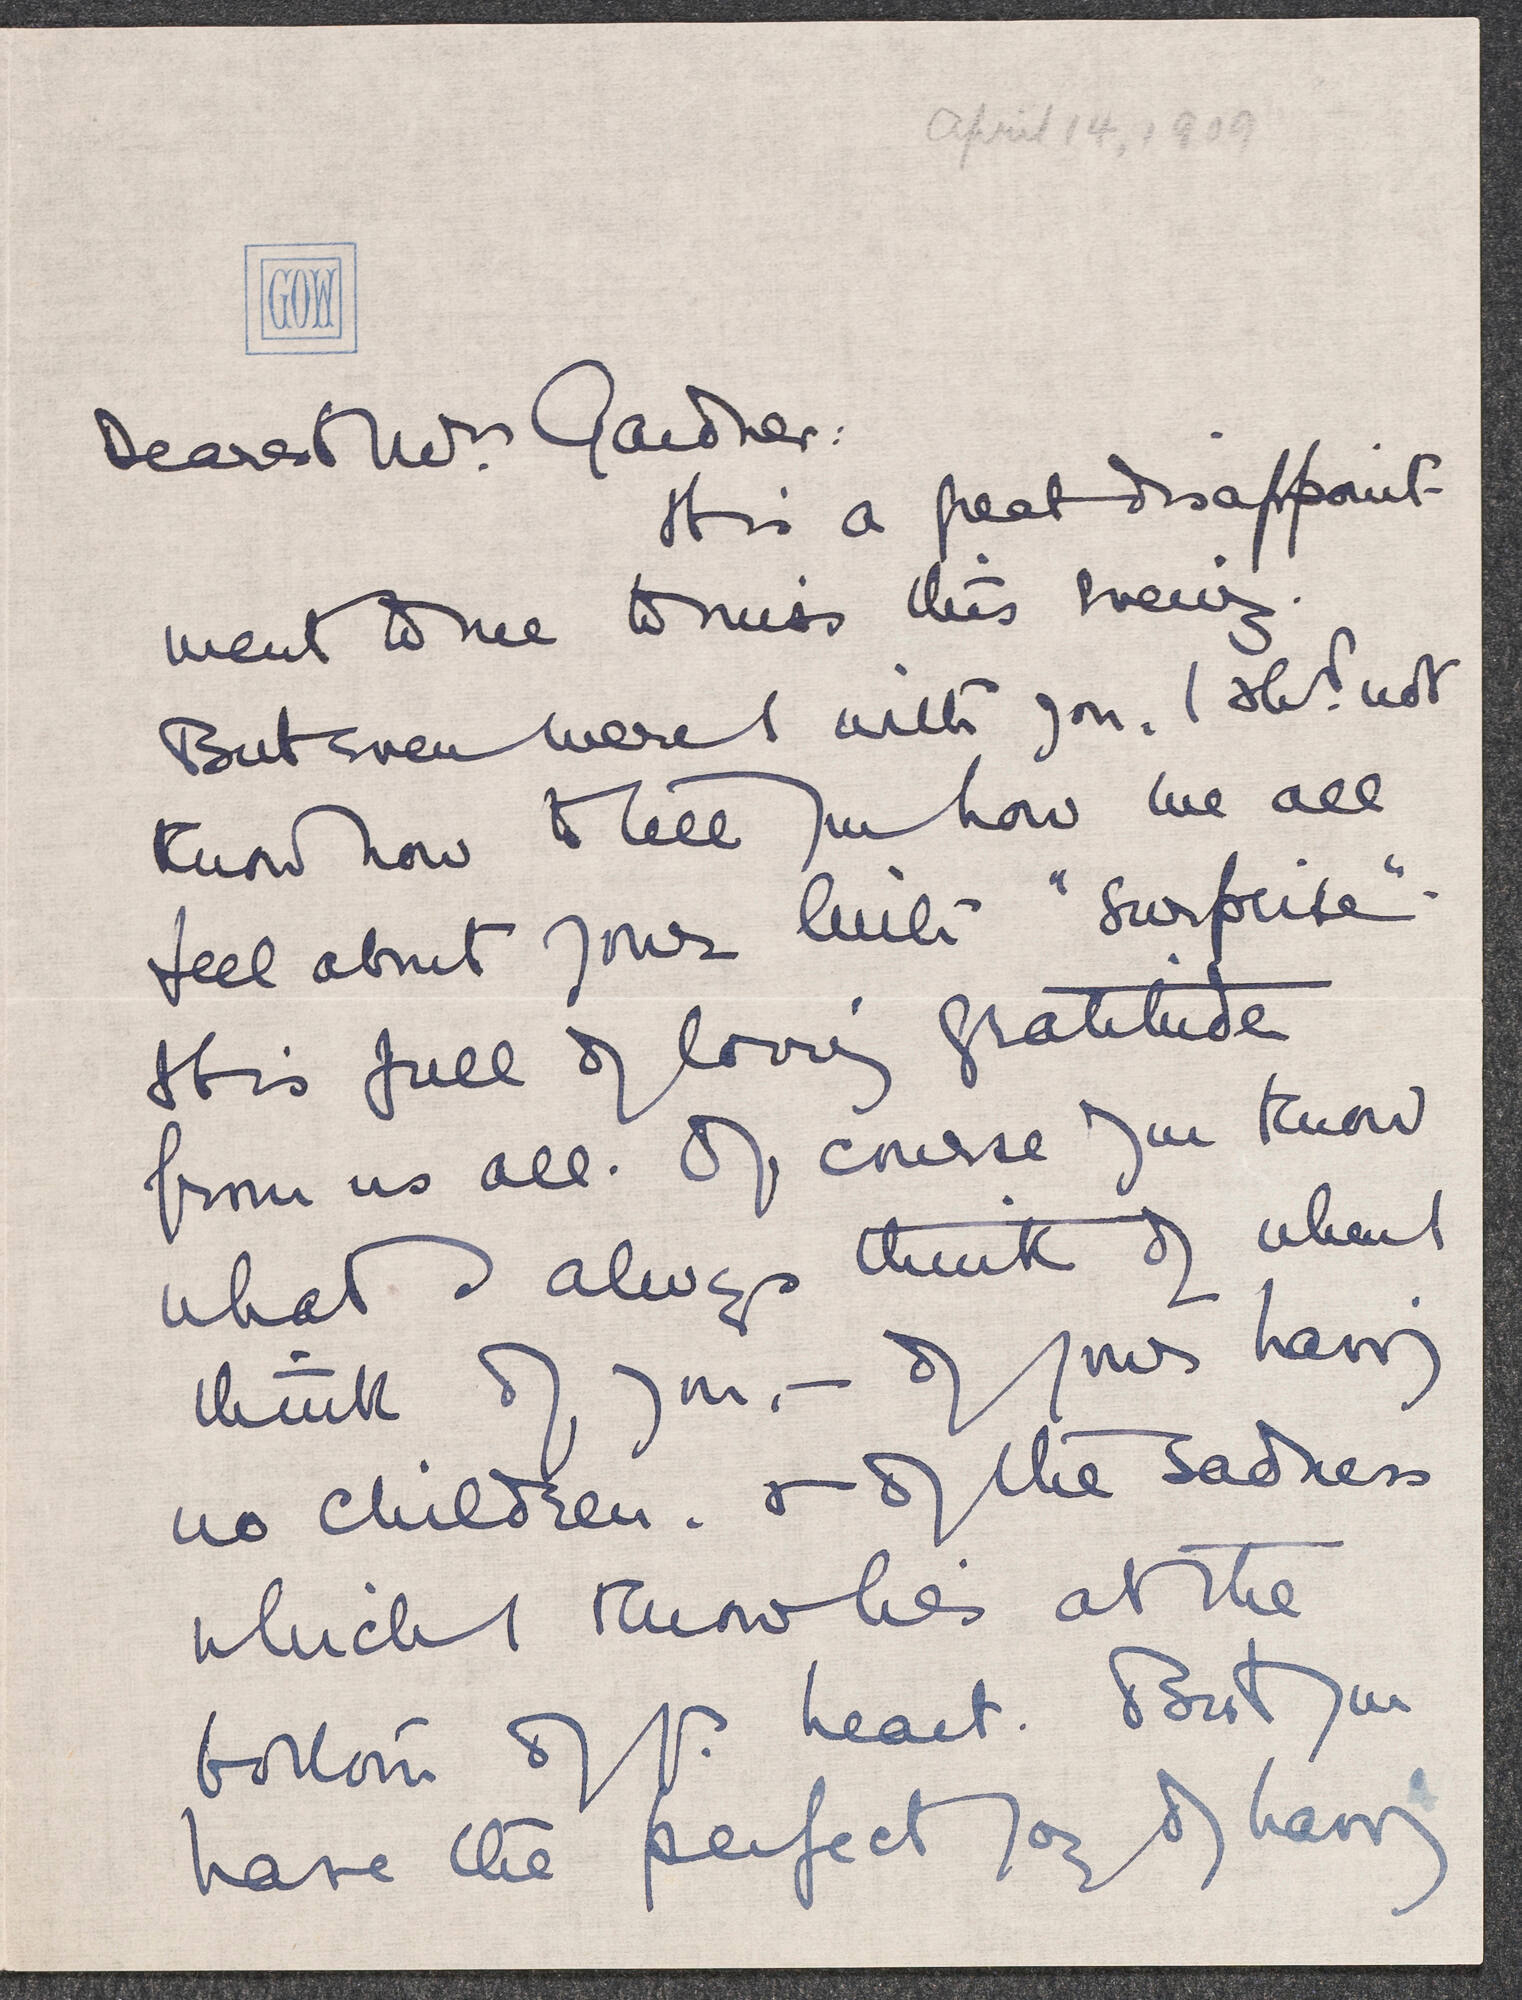 April 14, 1909
GOW
Dearest Mrs Gardner:
It is a great disappoint-
ment to me to miss this evening.
But even were I with you, I shd. not
know how to tell you how we all
feel about your little "surprise".
It is full of loving gratitude
from us all. Of course you know
what I always think of when I
think of you, — of your having
no children. & — of the sadness
which I know lies at the
bottom of yr. heart. But you
have the perfect joy of having